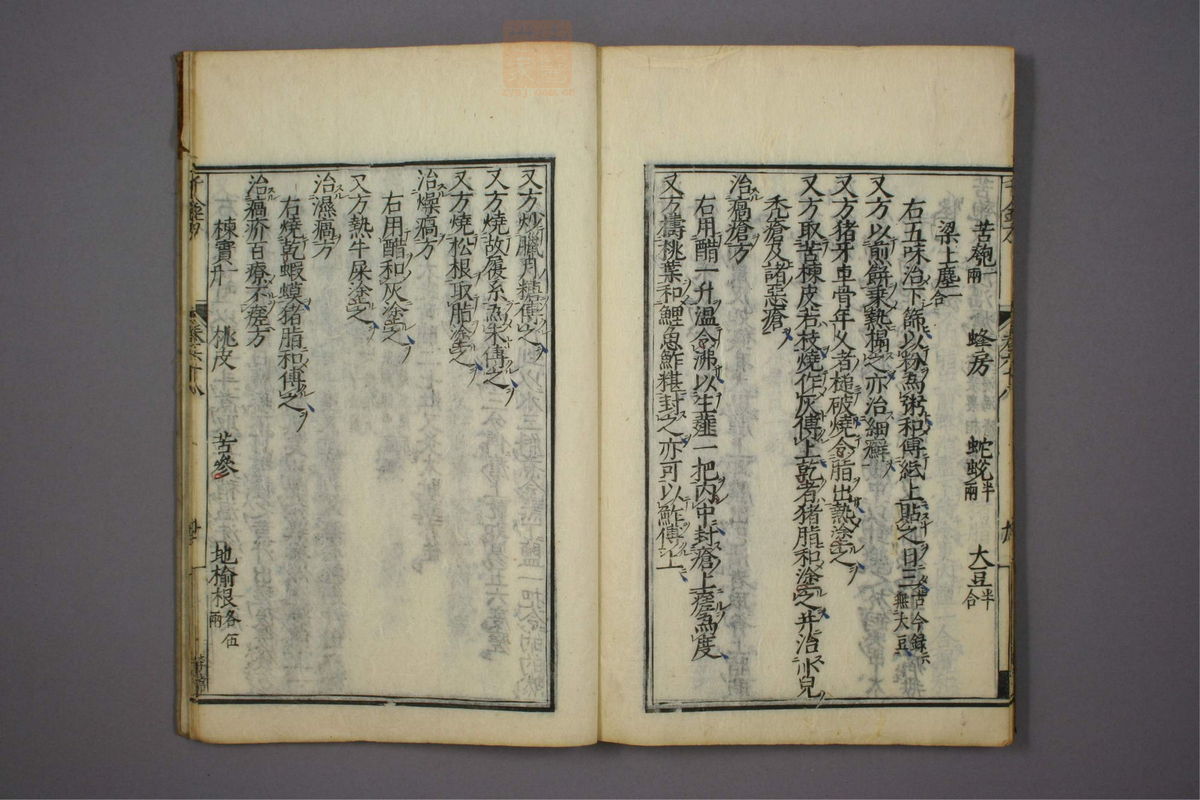 苦瓠一兩 蜂房 蛇蛻半兩 大豆半合
梁上塵一合
右五味治下篩以粉為粥和傅紙上貼之日三古今録云無大豆
又方以煎餅乗熱搨之亦治細癬
又方猪牙車骨年久者槌破燒令脂出熱塗之
又方取苦楝皮若枝燒作灰傅上乾者猪脂和塗之并治小兒
禿瘡及諸惡瘡
治瘑瘡方
右用醋一升溫令沸以生薤一把内中封瘡上瘥為度
又方擣桃葉和鯉魚鮓糝封之亦可以鮓傅上
又方炒臘月糖傅之
又方燒故履系為末傅之
又方燒松根取脂塗之
治燥瘑方
右用醋和灰塗之
又方熱牛屎塗之
治濕瘑方
右燒乾蝦蟆猪脂和傅之
治瘑疥百療不瘥方
楝實一升 桃皮 苦參 地榆根各伍兩